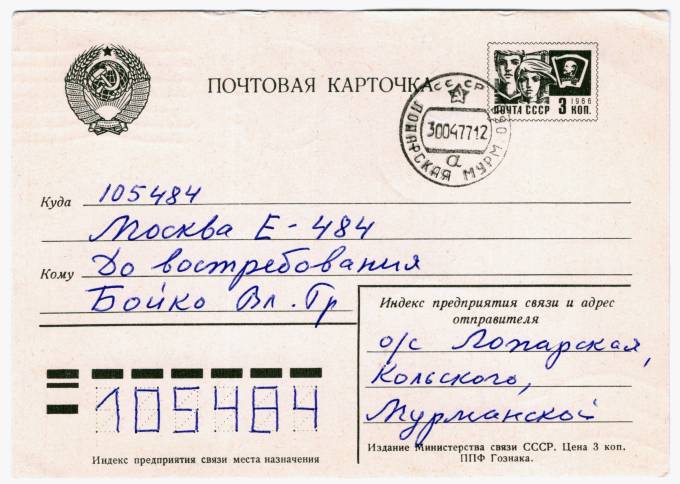 ПОЧТОВАЯ КАРТОЧКА
1966
ПОЧТА СССР 3 КОП.
СССР
ЛОПАРСКАЯ МУРМ. ОБЛ.
30047712
а
Куда 105484
Москва Е-484
Кому До востребования
Бойко Вл. Гр
Индекс предприятия связи и адрес
отправителя
о/с Лопарская,
Кольского,
Мурманской
105484
Индекс предприятия связи места назначения
Издание Министерства связи СССР. Цена 3 коп.
ППФ Гознака.